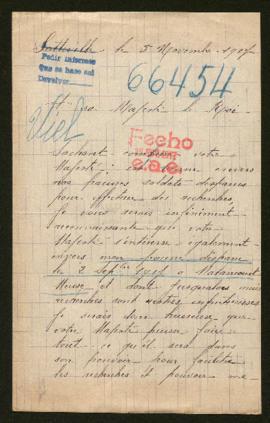 le 5 Novembre 1917
Pedir informes
Que se hase así
Devolver
66454
A sa Majesté le Roi
Viel
Fecho
e.a.e.
Sachant combien votre
Majesté
nos pauvres soldats disparus
pour effectuer des recherches,
je vous serais infiniment
reconnaissante que votre
Majesté également
envers mon pauvre disparu
le 2 Septbre 1917 à
Meuse, et dont jusqu'alors mes
recherches sont restées infructueuses
je serais donc heureuse que
votre Majesté puisse faire
tout ce qu'il sera dans
son pouvoir pour faciliter
les recherches et pouvoir me